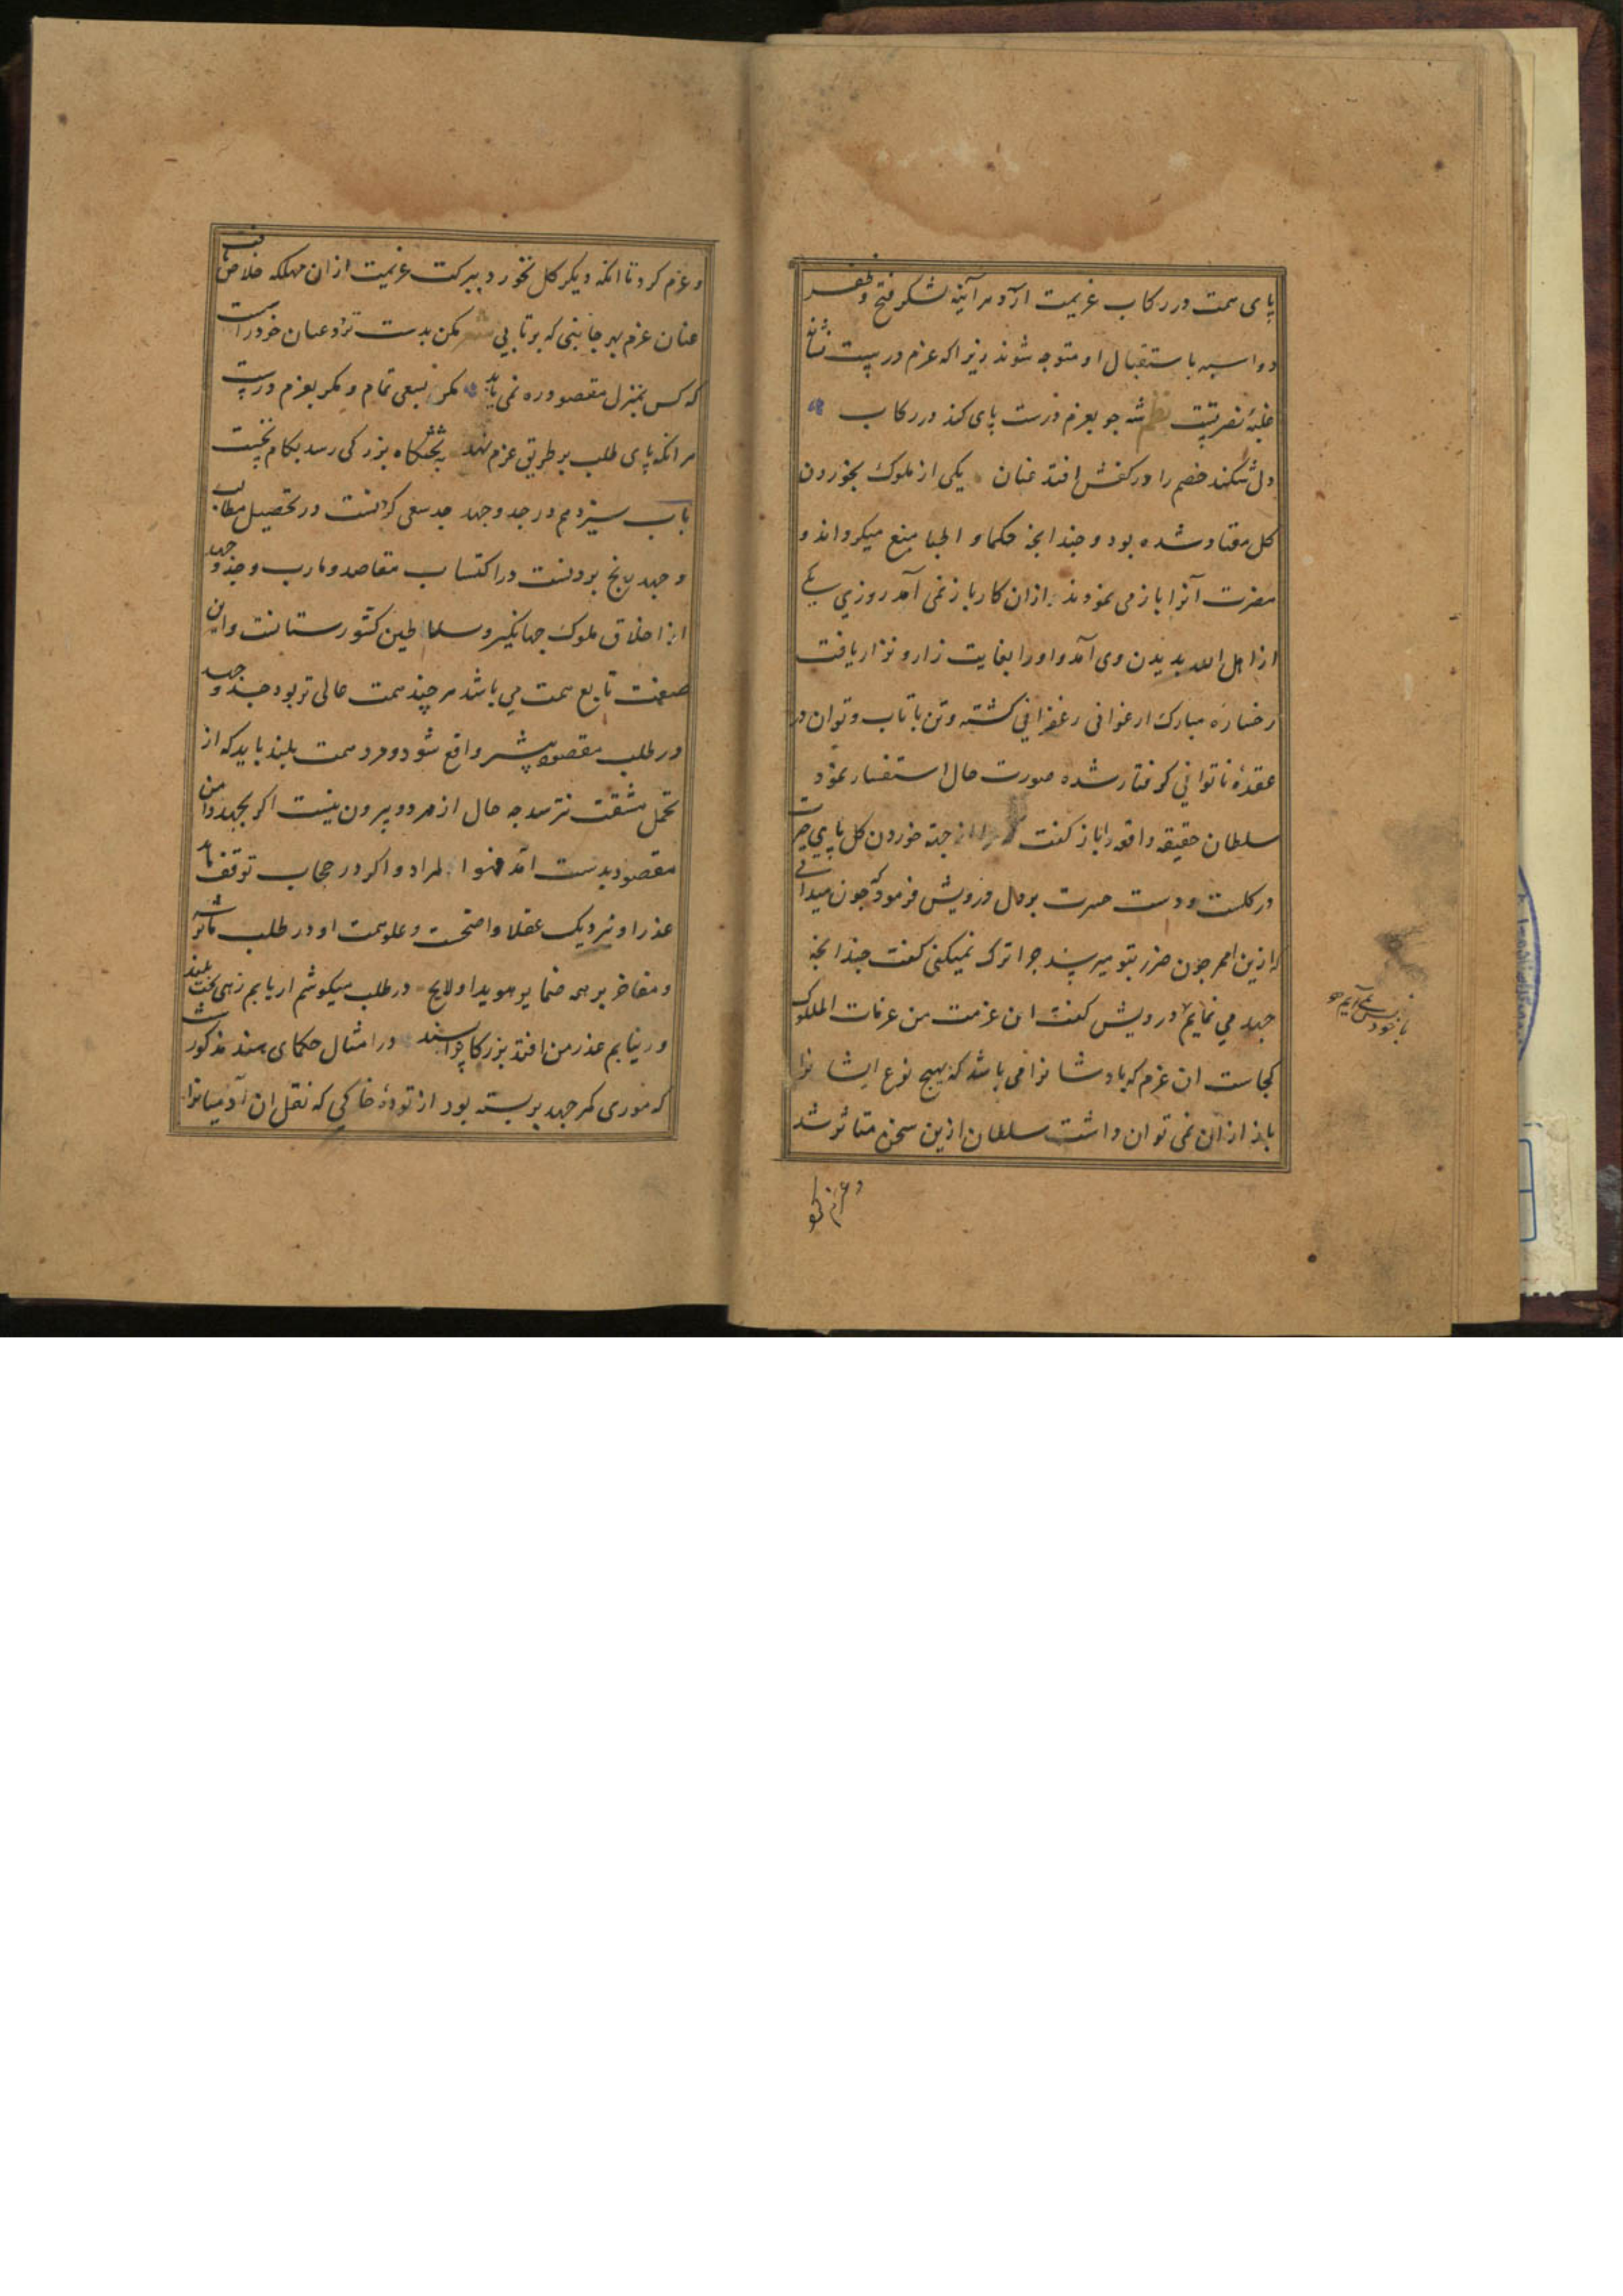 پای همت در رکاب عزیمت آرد هر آینه لشکر فتح و ظفر
دو اسبه باستقبال او متوجه شوند زیرا که عزم درست نشانهٔ
غلبه و نصرتست شه چو بعزم درست پای کند در رکاب
دل شکند خصم را در کفش افتد عنان یکی از ملوک بخوردن
کل معتاد شده بود و چندانجه حکما و اطبا منع میکردند و
مضرت آنرا باز می نمودند ازان کار باز نمی آمد روزی یکی
از اهل الله بدیدن وی آمد و او را بغایت زار و نزار یافت
رخساره مبارک ارغوانی زعفرانی کشته و تن با تاب و توان در
عقدهٔ ناتوانی کرفتار شده صورت حال استفسار نمود
سلطان حقیقه واقعه را باز کفت که مرا از جهة خوردن کل پای حیرت
در کلست و دست حسرت بر دل درویش فرمود که جون میدانی
که ازین امر جون ضرر بتو میرسد جرا ترک نمیکنی کفت جندانجه
جهد می نمایم درویش کفت این عزمت من عزمات الملوک
کجاست ان عزم که بادشاهانرا می باشد که بهیج نوع ایشانرا
باز ازان نمی توان داشت سلطان ازین سخن متاثر شد
و عزم کرد تا
با خود بس نمی آیم
و عزم کرد تا انکه دیکر کل نخورد ببرکت عزیمت ازان مهلکه خلاص یافت
عنان عزم بهر جانبی که برتابی مکن بدست تردد عنان خود را سست
که کس بمنزل مقصود ره نمی یابد مکر بسعی تمام و مکر بعزم درست
هر انکه پای طلب بر طریق عزم نهد به تختکاه بزرکی رسد بکام نخست
باب سیزدهم در جد و جهد جد سعی کردنست در تحصیل مطالب
و جهد رنج بردنست در اکتساب مقاصد و مارب و جد و جهد
از اخلاق ملوک جهانکیر و سلاطین کشور ستانست و این
صفت تابع همت می باشد هر چند همت عالی تر بود جد و جهد
در طلب مقصود بیشتر واقع شود و مرد همت بلند باید که از
تحمل مشقت نترسد چه حال از هر دو بیرون نیست اکر بجهد دامن
مقصود بدست امد فهو المراد و اکر در حجاب توقف ماند
عذر او نزدیک عقلا واضحست و علو همت او در طلب ماثر
و مفاخر بر همه ضمایر هویدا و لایح در طلب میکوشم ار یابم زهی بخت بلند
ور نیابم عذر من افتد بزرکانرا پسند در امثال حکمای هند مذکورست
که موری کمر جهد بر بسته بود از تودهٔ خاکی که نقل ان آدمیانرا